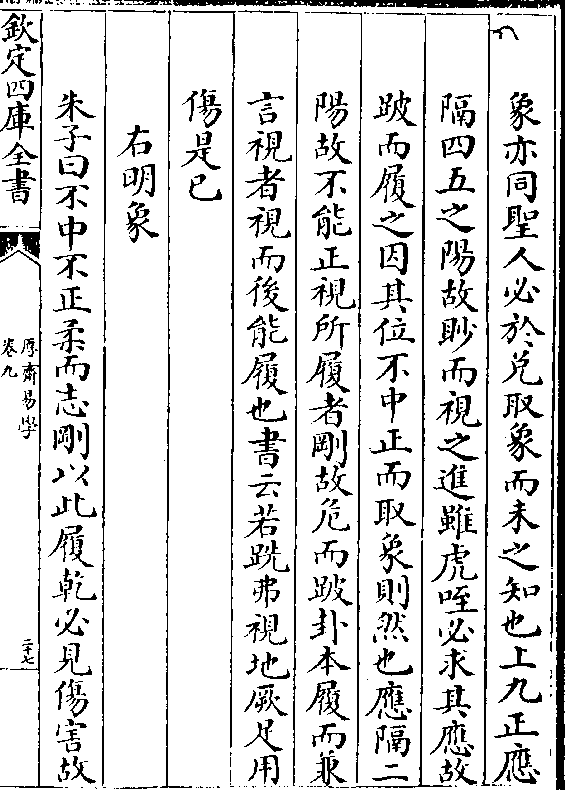 象亦同聖人必於兌取象而未之知也上九正應
隔四五之陽故眇而視之進雖虎咥必求其應故
跛而履之因其位不中正而取象則然也應隔二
陽故不能正視所履者剛故危而跛卦本履而兼
言視者視而後能履也書云若跣弗視地厥足用
傷是已
右明象
朱子曰不中不正柔而志剛以此履乾必見傷害故
欽定四庫全書
厚齋易學
卷九
二十七